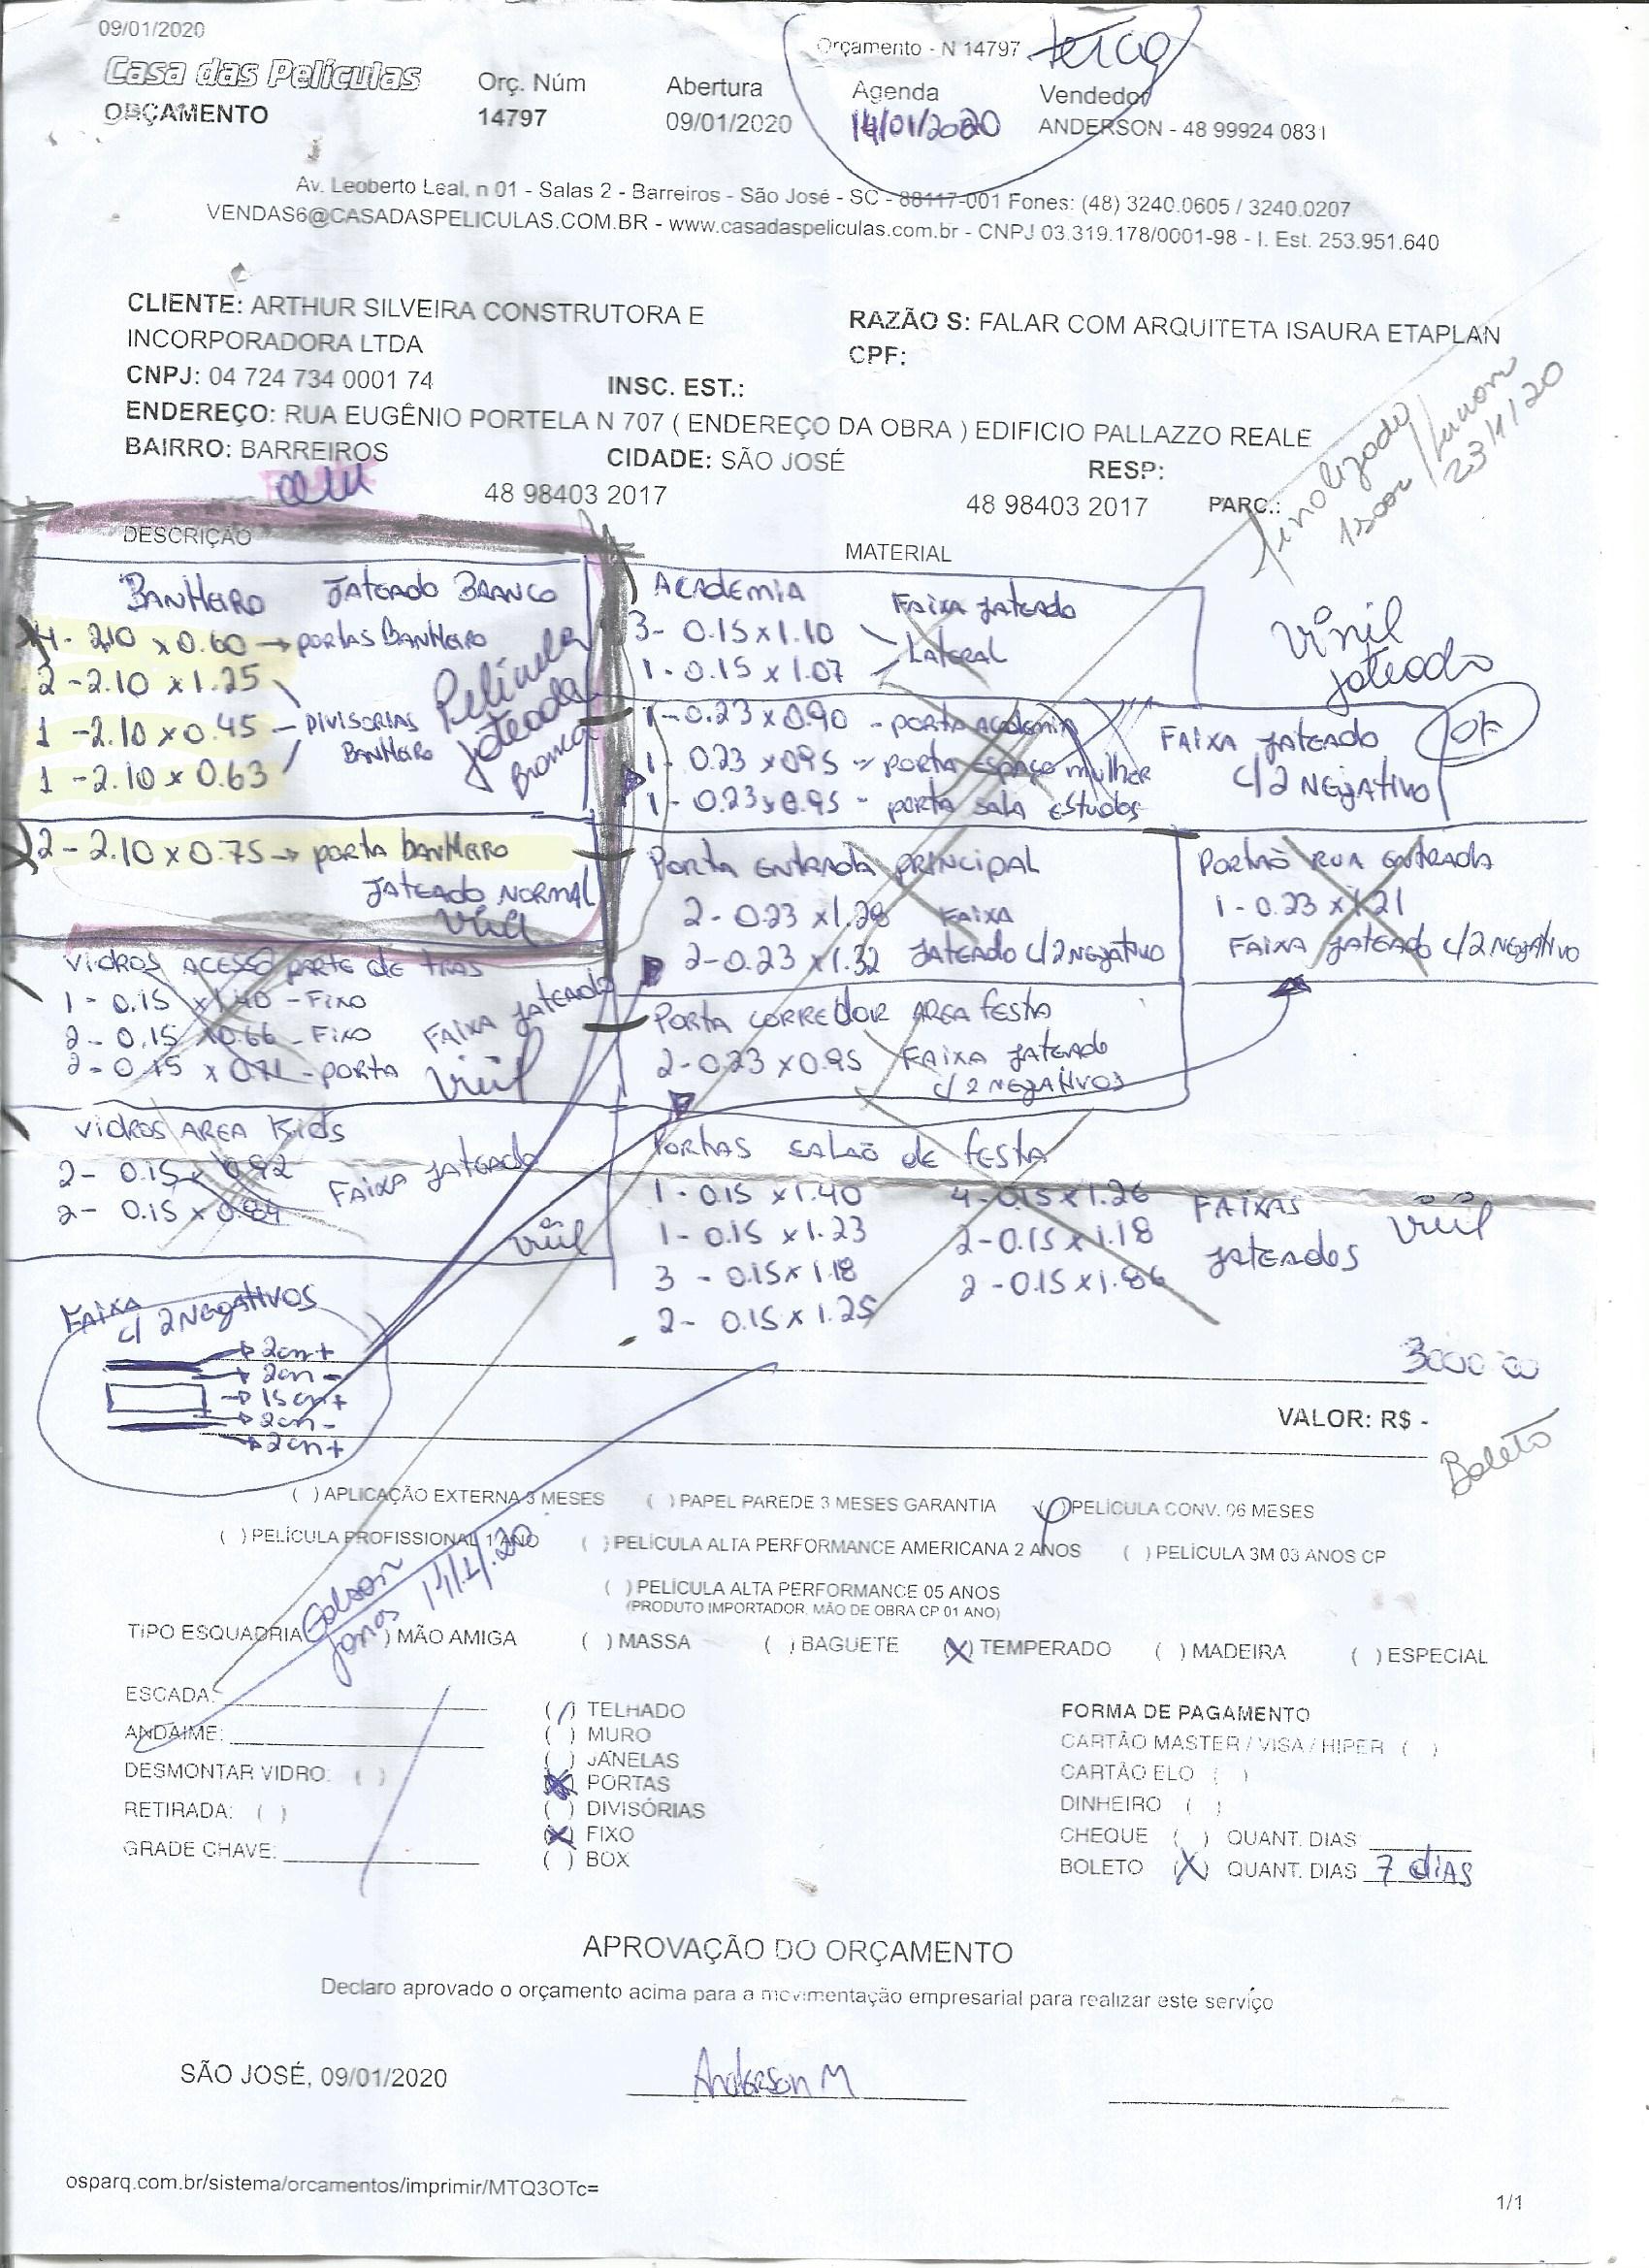 09/01/2020
Orçamento - N 14797 terça
Casa das Películas
ORÇAMENTO
Orç. Núm
14797
Abertura
09/01/2020
Agenda
14/01/2020
Vendedor
ANDERSON - 48 99924 0831
Av. Leoberto Leal, n 01 - Salas 2 - Barreiros - São José - SC - 88117-001 Fones: (48) 3240.0605 / 3240.0207
VENDAS6@CASADASPELICULAS.COM.BR - www.casadaspeliculas.com.br - CNPJ 03.319.178/0001-98 - I. Est. 253.951.640
CLIENTE: ARTHUR SILVEIRA CONSTRUTORA E
INCORPORADORA LTDA
RAZÃO S: FALAR COM ARQUITETA ISAURA ETAPLAN
CPF:
CNPJ: 04 724 734 0001 74
INSC. EST.:
ENDEREÇO: RUA EUGÊNIO PORTELA N 707 ( ENDEREÇO DA OBRA ) EDIFICIO PALLAZZO REALE
BAIRRO: BARREIROS
CIDADE: SÃO JOSÉ
RESP:
48 98403 2017
48 98403 2017
PARC.:
finalizado
23/1/20
DESCRIÇÃO
MATERIAL
BANHEIRO JATEADO BRANCO
4- 2.10 x 0.60 → PORTAS BANHEIRO
2 - 2.10 x 1.25
1 - 2.10 x 0.45 - DIVISORIAS
BANHEIRO
1 - 2.10 x 0.63
Película
jateada
Branca
2 - 2.10 x 0.75 → PORTA BANHEIRO
JATEADO NORMAL
Vinil
ACADEMIA
FAIXA JATEADO
3- 0.15 x 1.10
LATERAL
1 - 0.15 x 1.07
Vinil
jateado
1 - 0.23 x 0.90 - PORTA ACADEMIA
1 - 0.23 x 0.95 - PORTA ESPAÇO MULHER
1 - 0.23 x 0.95 - PORTA SALA ESTUDOS
FAIXA JATEADO
C/2 NEGATIVO
OK
PORTA ENTRADA PRINCIPAL
2 - 0.23 x 1.28 FAIXA
2 - 0.23 x 1.32 JATEADO C/2 NEGATIVO
PORTÃO RUA ENTRADA
1 - 0.23 x 1.21
FAIXA JATEADO C/2 NEGATIVO
VIDROS ACESSO PARTE DE TRAS
1 - 0.15 x 1.40 - FIXO
2 - 0.15 x 0.66 - FIXO
2 - 0.15 x 0.71 - PORTA
FAIXA JATEADO
Vinil
PORTA CORREDOR AREA FESTA
2 - 0.23 x 0.95 FAIXA JATEADO
C/ 2 NEGATIVOS
VIDROS AREA KIDS
2 - 0.15 x 0.92
2 - 0.15 x 0.84
FAIXA JATEADO
Vinil
PORTAS SALAÕ DE FESTA
1 - 0.15 x 1.40 4 - 0.15 x 1.26
1 - 0.15 x 1.23 2 - 0.15 x 1.18
3 - 0.15 x 1.18 2 - 0.15 x 1.86
2 - 0.15 x 1.25
FAIXAS
JATEADOS
Vinil
FAIXA
C/ 2 NEGATIVOS
→ 2cm +
→ 2cm -
→ 15cm +
→ 2cm -
→ 2cm +
3000 00
VALOR: R$ -
Boleto
( ) APLICAÇÃO EXTERNA 3 MESES ( ) PAPEL PAREDE 3 MESES GARANTIA ( ) PELÍCULA CONV. 06 MESES
( ) PELÍCULA PROFISSIONAL 1 ANO ( ) PELÍCULA ALTA PERFORMANCE AMERICANA 2 ANOS ( ) PELÍCULA 3M 03 ANOS CP
( ) PELÍCULA ALTA PERFORMANCE 05 ANOS
(PRODUTO IMPORTADOR, MÃO DE OBRA CP 01 ANO)
Edson
Jonas 14/1/20
TIPO ESQUADRIA ) MÃO AMIGA ( ) MASSA ( ) BAGUETE (X) TEMPERADO ( ) MADEIRA ( ) ESPECIAL
ESCADA:
ANDAIME:
DESMONTAR VIDRO: ( )
RETIRADA: ( )
GRADE CHAVE:
(/) TELHADO
( ) MURO
( ) JANELAS
(X) PORTAS
( ) DIVISÓRIAS
(X) FIXO
( ) BOX
FORMA DE PAGAMENTO
CARTÃO MASTER / VISA / HIPER ( )
CARTÃO ELO ( )
DINHEIRO ( )
CHEQUE ( ) QUANT. DIAS
BOLETO (X) QUANT. DIAS 7 dias
APROVAÇÃO DO ORÇAMENTO
Declaro aprovado o orçamento acima para a movimentação empresarial para realizar este serviço
SÃO JOSÉ, 09/01/2020
Anderson M
osparq.com.br/sistema/orcamentos/imprimir/MTQ3OTc=
1/1